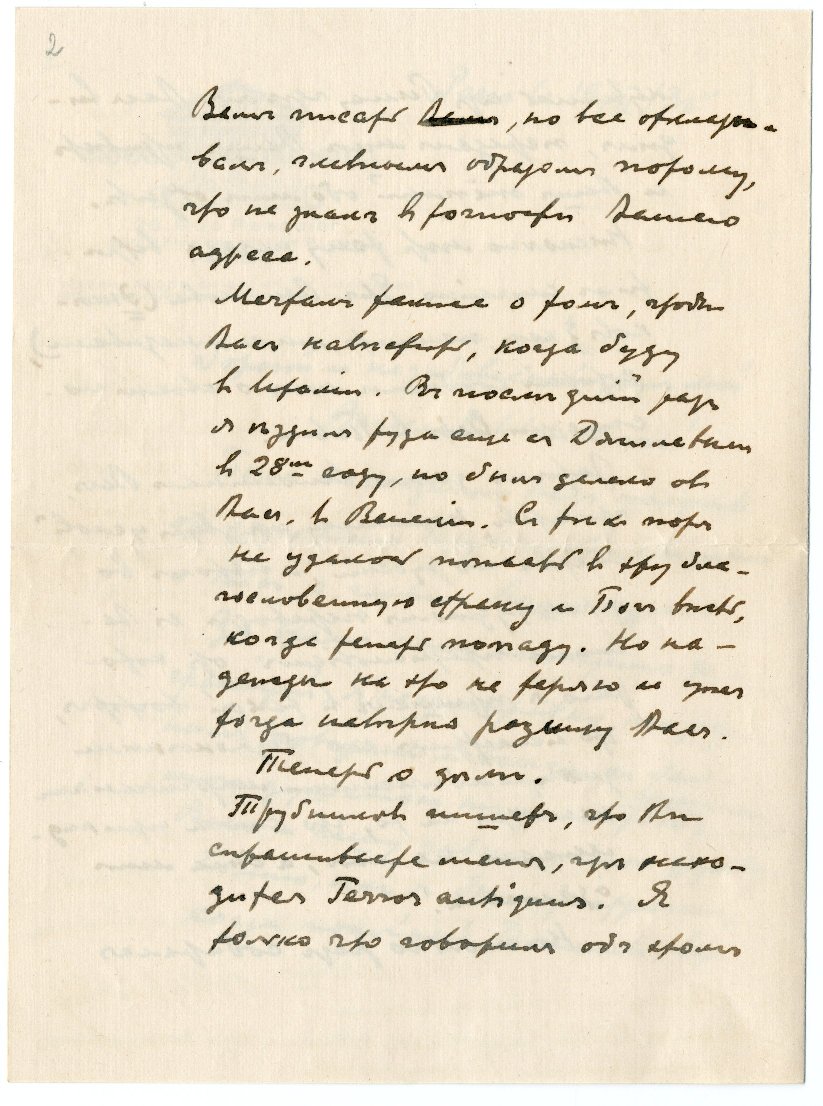 2
Вамъ писать Вамъ, но все отклады-
валъ, главнымъ образомъ потому,
что не зналъ въ точности Вашего
адреса.
Мечталъ также о томъ, чтобы
Васъ навѣстить, когда буду
въ Италіи. Въ послѣдній разъ
я ѣздилъ туда еще съ Дягилевымъ
въ 28мъ году, но былъ далеко отъ
Васъ, въ Венеціи. Съ тѣхъ поръ
не удалось попасть въ эту бла-
гословенную страну и Богъ вѣсть,
когда теперь попаду. Но на-
дежды на это не теряю и ужъ
тогда навѣрно разыщу Васъ.
Теперь о дѣлѣ.
Трубниковъ пишетъ, что Вы
спрашиваете меня, гдѣ нахо-
дится Terror antiquus. Я
только что говорилъ объ этомъ